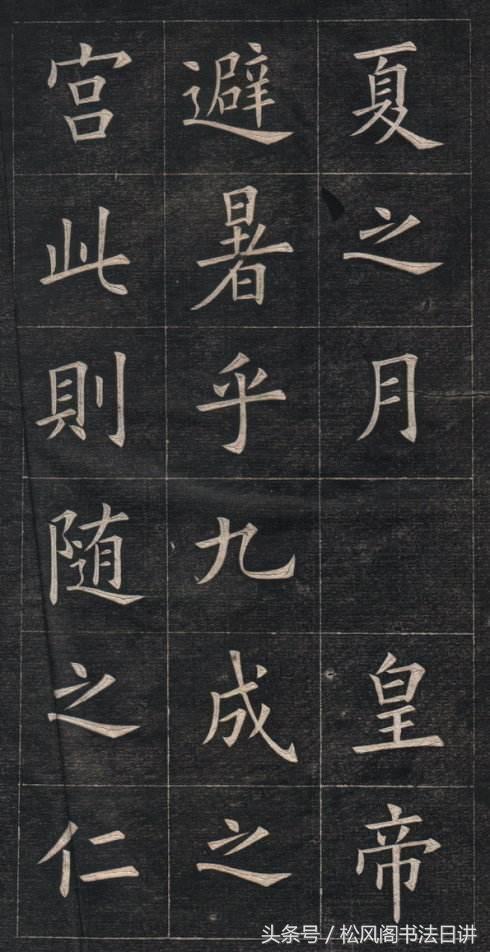 夏之月 皇帝
避暑乎九成之
宫此則随之仁
头条号/松风阁书法日讲